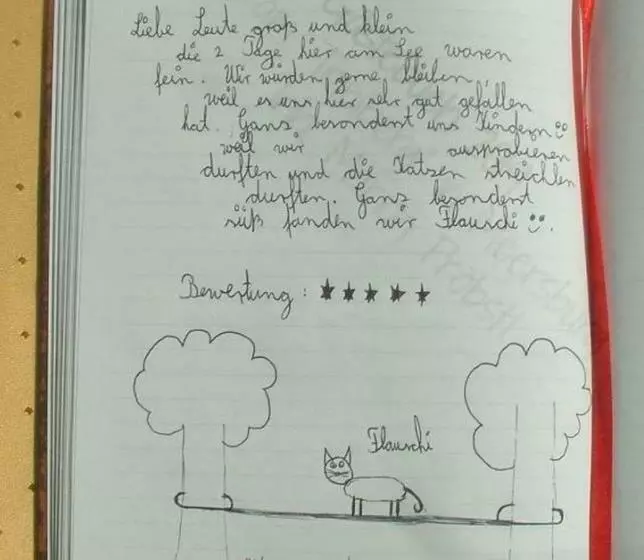 Liebe Leute groß und klein
die 2 Tage hier am See waren
fein. Wir würden gerne bleiben,
weil es uns hier sehr gut gefallen
hat. Ganz besondert uns Kindern
weil wir ausprobieren
durften und die Katzen streichlen
durften. Ganz besondert
süß fanden wir Flauschi
Bewertung: ★ ★ ★ ★ ★
Flauschi